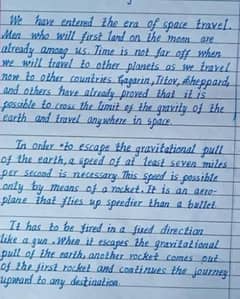 We have entered the era of space travel.
Men who will first land on the moon are
already among us. Time is not far off when
we will travel to other planets as we travel
now to other countries. Gagarin, Titov, Sheppard,
and others have already proved that it is
possible to cross the limit of the gravity of the
earth and travel anywhere in space.
In order to escape the gravitational pull
of the earth, a speed of at least seven miles
per second is necessary. This speed is possible
only by means of a rocket. It is an aero-
plane that flies up speedier than a bullet.
It has to be fired in a fixed direction
like a gun. When it escapes the gravitational
pull of the earth, another rocket comes out
of the first rocket and continues the journey
upward to any destination.